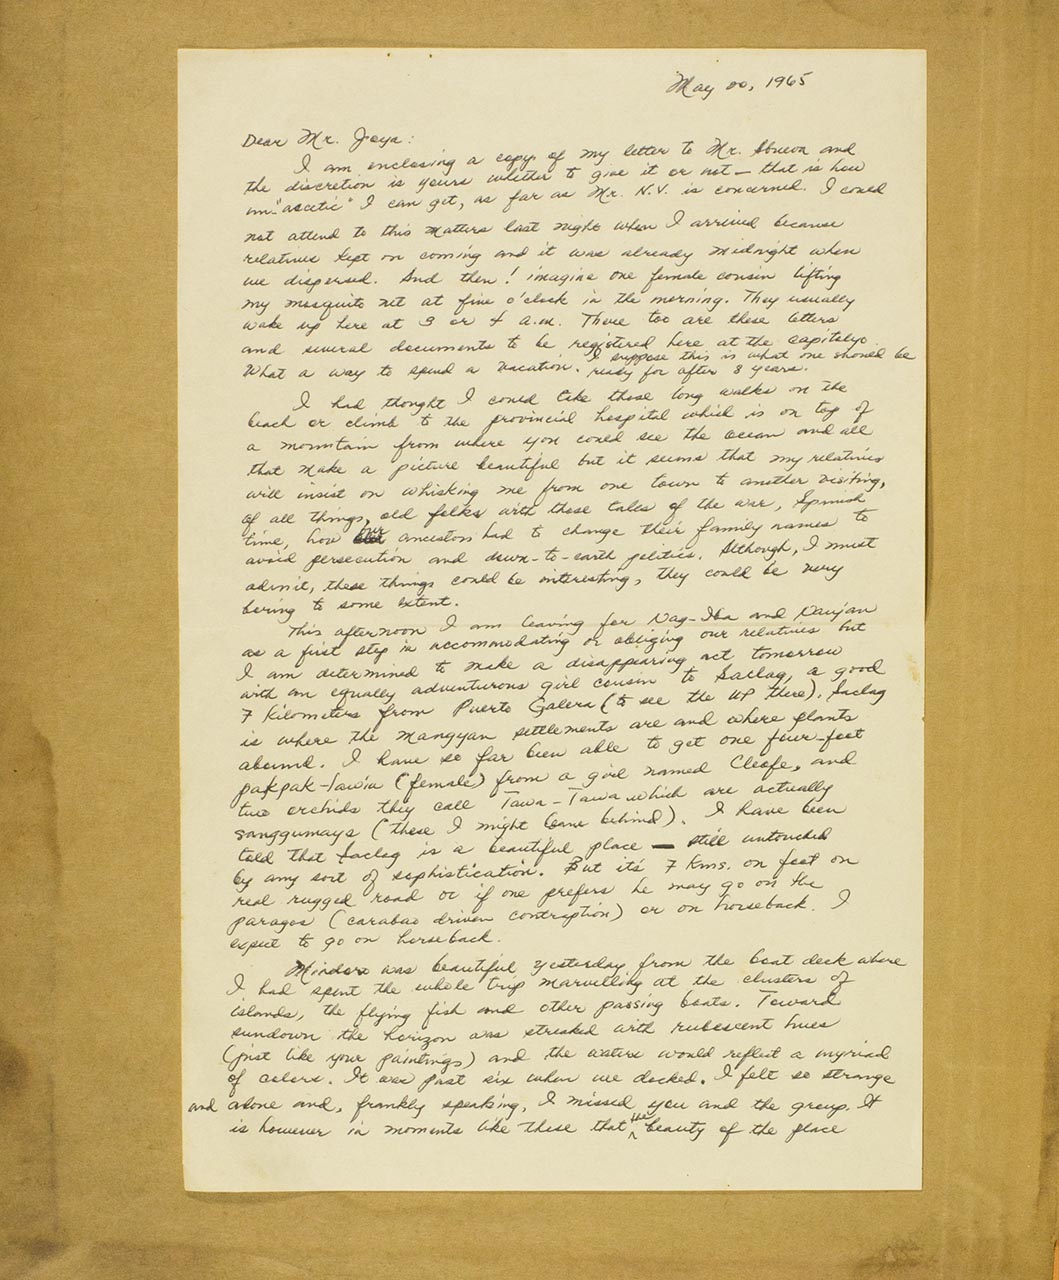 May 00, 1965
Dear Mr. Joya:
I am enclosing a copy of my letter to Mr. Abueva and
the discretion is yours whether to give it or not — that is how
un-"ascetic" I can get, as far as Mr. N.V. is concerned. I could
not attend to this matters last night when I arrived because
relatives kept on coming and it was already midnight when
we dispersed. And then! imagine one female cousin lifting
my mosquito net at five o'clock in the morning. They usually
wake up here at 3 or 4 a.m. There too are these letters
and several documents to be registered here at the capitolyo.
What a way to spend a vacation. I suppose this is what one should be
ready for after 8 years.
I had thought I could take those long walks on the
beach or climb to the provincial hospital which is on top of
a mountain from where you could see the ocean and all
that make a picture beautiful but it seems that my relatives
will insist on whisking me from one town to another visiting,
of all things, old folks with those tales of the war, Spinish
time, how our ancestors had to change their family names to
avoid persecution and down-to-earth politics. Although, I must
admit, these things could be interesting, they could be very
boring to some extent.
This afternoon I am leaving for Nag-Iba and Naujan
as a first step in accommodating or obliging our relatives but
I am determined to make a disappearing act tomorrow
with an equally adventurous girl cousin to Saclag, a good
7 kilometers from Puerto Galera (to see the UP there). Saclag
is where the mangyan settlements are and where plants
abound. I have so far been able to get one four-feet
pakpak-lawin ("female") from a girl named Cleofe, and
two orchids they call Tawa-Tawa which are actually
sanggumays (these I might leave behind). I have been
told that Saclag is a beautiful place — still untouched
by any sort of sophistication. But it's 7 kms. on foot on
real rugged road or if one prefers he may go on the
paragos (carabao driven contraption) or on horseback. I
expect to go on horseback.
Mindoro was beautiful yesterday from the boat deck where
I had spent the whole trip marvelling at the clusters of
islands, the flying fish and other passing boats. Toward
sundown the horizon was streaked with rubescent hues
(just like your paintings) and the waters would reflect a myriad
of colors. It was past six when we docked. I felt so strange
and alone and, frankly speaking, I missed you and the group. It
is however in moments like these that the beauty of the place